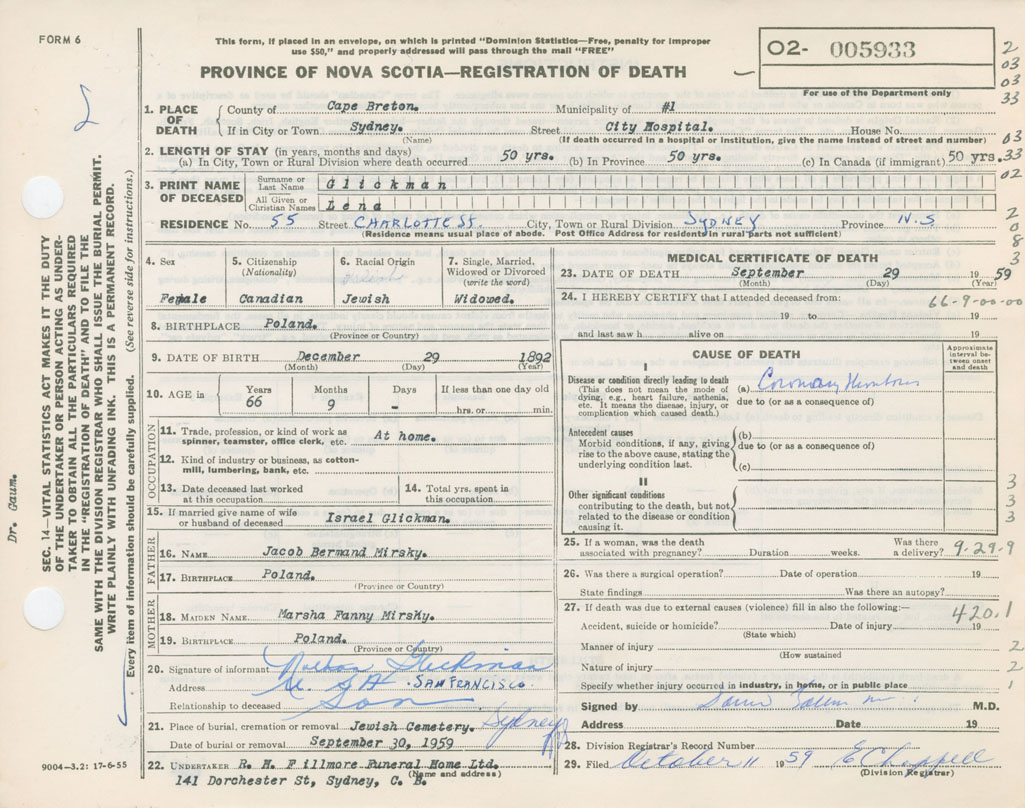 FORM 6
This form, if placed in an envelope, on which is printed "Dominion Statistics—Free, penalty for improper
use $50," and properly addressed will pass through the mail "FREE"
PROVINCE OF NOVA SCOTIA—REGISTRATION OF DEATH
02- 005933
For use of the Department only
2
03
03
33
1. PLACE OF DEATH
County of Cape Breton. Municipality of #1
If in City or Town Sydney. Street City Hospital. House No.
(Name) (If death occurred in a hospital or institution, give the name instead of street and number)
03
2. LENGTH OF STAY (in years, months and days)
(a) In City, Town or Rural Division where death occurred 50 yrs. (b) In Province 50 yrs. (c) In Canada (if immigrant) 50 yrs.
33
3. PRINT NAME OF DECEASED
Surname or Last Name Glickman
02
All Given or Christian Names Lena
RESIDENCE No. 55 Street CHARLOTTE ST. City, Town or Rural Division SYDNEY Province N.S
(Residence means usual place of abode. Post Office Address for residents in rural parts not sufficient)
2
0
8
3
4. Sex
Female
5. Citizenship
(Nationality)
Canadian
6. Racial Origin
Jewish
7. Single, Married,
Widowed or Divorced
(write the word)
Widowed.
8. BIRTHPLACE Poland.
(Province or Country)
9. DATE OF BIRTH December 29 1892
(Month) (Day) (Year)
10. AGE in
Years Months Days If less than one day old
66 9 - hrs. or min.
OCCUPATION
11. Trade, profession, or kind of work as
spinner, teamster, office clerk, etc. At home.
12. Kind of industry or business, as cotton-
mill, lumbering, bank, etc.
13. Date deceased last worked
at this occupation
14. Total yrs. spent in
this occupation
15. If married give name of wife
or husband of deceased Israel Glickman.
FATHER
16. NAME Jacob Bermand Mirsky.
17. BIRTHPLACE Poland.
(Province or Country)
MOTHER
18. MAIDEN NAME Marsha Fanny Mirsky.
19. BIRTHPLACE Poland.
(Province or Country)
20. Signature of informant Nathan Glickman
Address U.S.A. SAN FRANCISCO.
Relationship to deceased Son
21. Place of burial, cremation or removal Jewish Cemetery. Sydney
Date of burial or removal September 30, 1959
22. UNDERTAKER R. H. Fillmore Funeral Home Ltd.
(Name and address)
141 Dorchester St, Sydney, C. B.
MEDICAL CERTIFICATE OF DEATH
23. DATE OF DEATH September 29 1959
(Month) (Day) (Year)
24. I HEREBY CERTIFY that I attended deceased from:
66-9-00-00
19 to 19
and last saw h alive on 19
CAUSE OF DEATH
Approximate interval between onset and death
I
Disease or condition directly leading to death
(This does not mean the mode of
dying, e.g., heart failure, asthenia,
etc. It means the disease, injury, or
complication which caused death.)
(a) Coronary Thrombosis
due to (or as a consequence of)
Antecedent causes
Morbid conditions, if any, giving
rise to the above cause, stating the
underlying condition last.
(b)
due to (or as a consequence of)
(c)
II
Other significant conditions
contributing to the death, but not
related to the disease or condition
causing it.
3
3
3
25. If a woman, was the death
associated with pregnancy? Duration weeks. Was there
a delivery? 9-29-9
26. Was there a surgical operation? Date of operation 19
State findings Was there an autopsy?
27. If death was due to external causes (violence) fill in also the following:—
420.1
Accident, suicide or homicide? Date of injury 19
(State which)
Manner of injury 2
(How sustained
Nature of injury 2
Specify whether injury occurred in industry, in home, or in public place 1
Signed by M.D.
Address Date 19
28. Division Registrar's Record Number
29. Filed October 11 1959 E Chappell
(Division Registrar)
9004-3.2: 17-6-55
Dr. Gaum.
SEC. 14—VITAL STATISTICS ACT MAKES IT THE DUTY
OF THE UNDERTAKER OR PERSON ACTING AS UNDER-
TAKER TO OBTAIN ALL THE PARTICULARS REQUIRED
IN THE "REGISTRATION OF DEATH" AND TO FILE THE
SAME WITH THE DIVISION REGISTRAR WHO SHALL ISSUE THE BURIAL PERMIT.
WRITE PLAINLY WITH UNFADING INK. THIS IS A PERMANENT RECORD.
Every item of information should be carefully supplied. (See reverse side for instructions.)